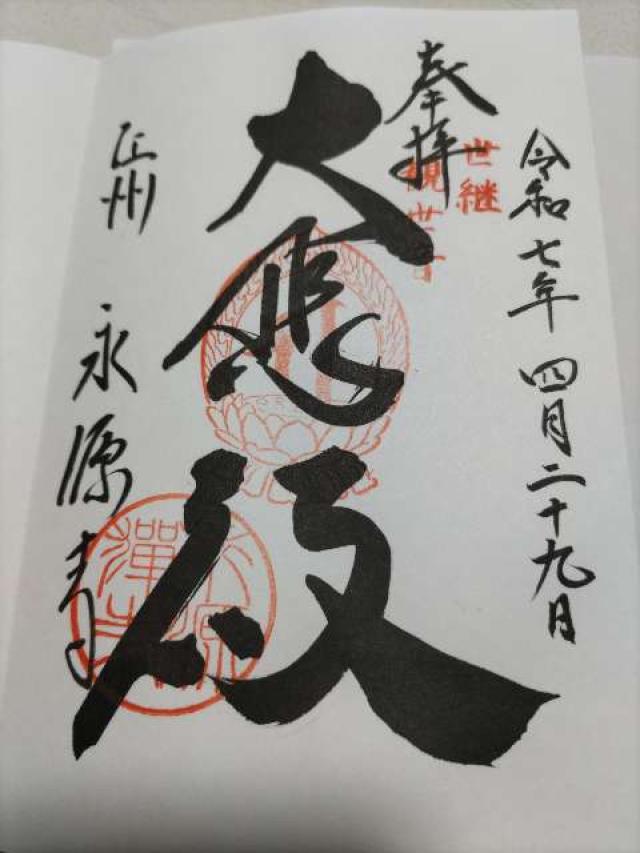 令和七年 四月二十九日
奉拝
世継
観世音
大悲殿
江州 永源寺
永源
禪寺